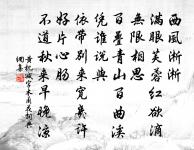 西風淅淅
滿眼芙蓉紅欲滴
無限相思
百疊青山百曲溪
憑誰說與
衣帶別來寬幾許
好片心腸
不道秋來早晚涼
黃機減字木蘭花